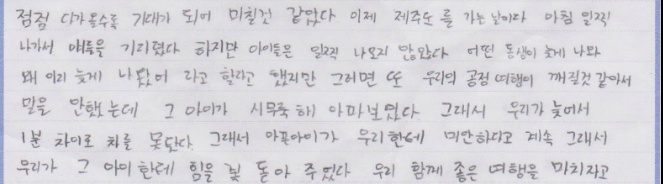 점점 다가올수록 기대가 되어 미칠것 같았다 이제 제주도를 가는 날이다 아침 일찍
나가서 얘들을 기다렸다 하지만 아이들은 일찍 나오지 않았다 어떤 동생이 늦게 나와
왜 이리 늦게 나왔어 라고 할라고 했지만 그러면 또 우리의 공정 여행이 깨질것 같아서
말을 안했는데 그 아이가 시무룩해 아파보였다 그래서 우리가 늦어서
1분 차이로 차를 못탔다. 그래서 아픈아이가 우리한테 미안하다고 계속 그래서
우리가 그 아이한테 힘을 북돋아 주었다 우리 함께 좋은 여행을 마치자고